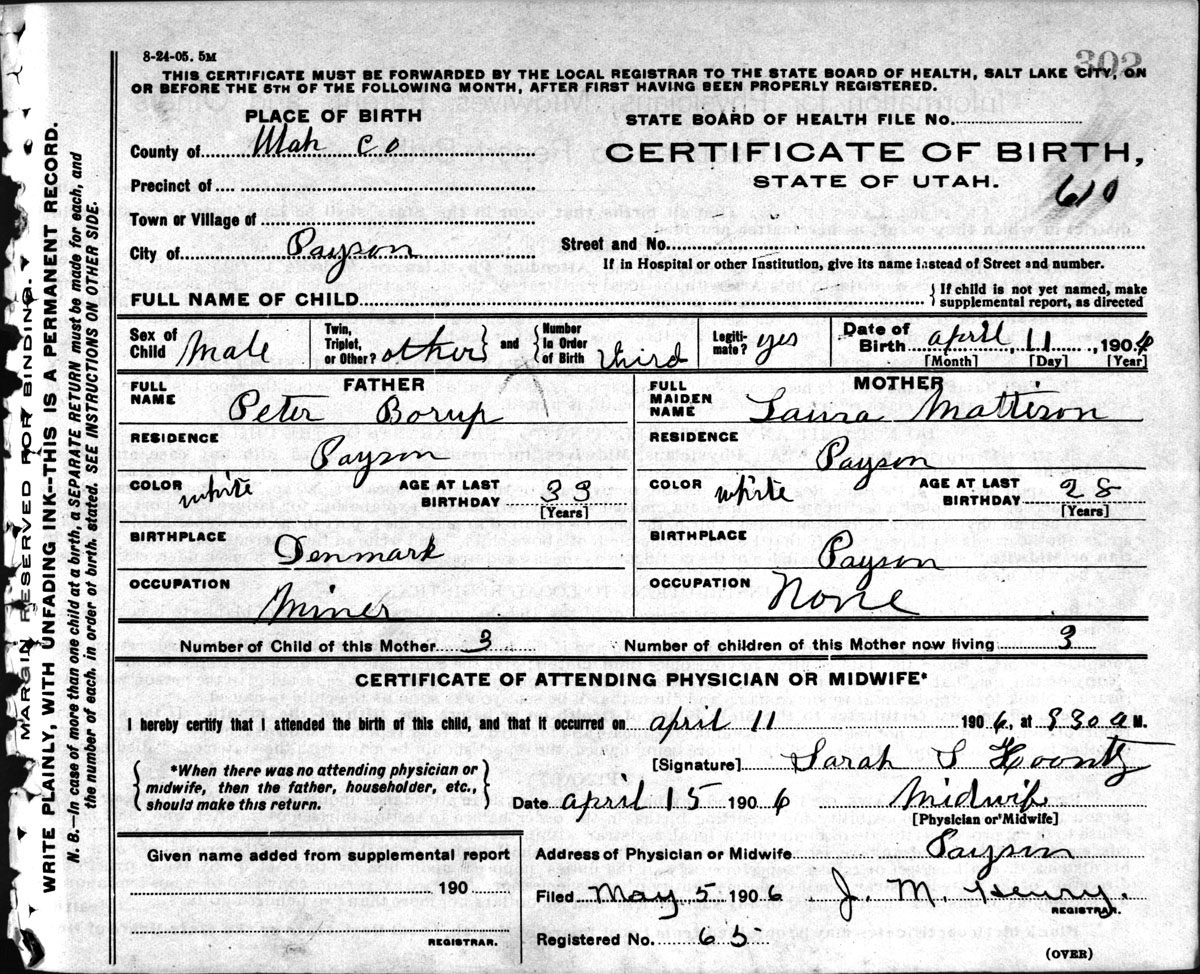 8-24-05. 5M
302
THIS CERTIFICATE MUST BE FORWARDED BY THE LOCAL REGISTRAR TO THE STATE BOARD OF HEALTH, SALT LAKE CITY, ON
OR BEFORE THE 5TH OF THE FOLLOWING MONTH, AFTER FIRST HAVING BEEN PROPERLY REGISTERED.
PLACE OF BIRTH
STATE BOARD OF HEALTH FILE No.
County of Utah Co
CERTIFICATE OF BIRTH,
STATE OF UTAH.
610
Precinct of
Town or Village of
City of Payson
Street and No.
If in Hospital or other Institution, give its name instead of Street and number.
FULL NAME OF CHILD
{ If child is not yet named, make
supplemental report, as directed
Sex of Child Male
Twin, Triplet, or Other? other } and { Number In Order of Birth third
Legiti-mate? yes
Date of Birth april 11, 1906
[Month] [Day] [Year]
FATHER
FULL NAME Peter Borup
RESIDENCE Payson
COLOR white AGE AT LAST BIRTHDAY 33
[Years]
BIRTHPLACE Denmark
OCCUPATION Miner
MOTHER
FULL MAIDEN NAME Laura Mattison
RESIDENCE Payson
COLOR white AGE AT LAST BIRTHDAY 28
[Years]
BIRTHPLACE Payson
OCCUPATION None
Number of Child of this Mother 3 Number of children of this Mother now living 3
CERTIFICATE OF ATTENDING PHYSICIAN OR MIDWIFE*
I hereby certify that I attended the birth of this child, and that it occurred on april 11 1906, at 930 a M.
{ *When there was no attending physician or
midwife, then the father, householder, etc.,
should make this return. }
[Signature] Sarah S Koontz
Date april 15 1906 Midwife
[Physician or Midwife]
Given name added from supplemental report
190
REGISTRAR.
Address of Physician or Midwife Payson
Filed May 5 1906 J. M. Henry.
REGISTRAR.
Registered No. 65
(OVER)
MARGIN RESERVED FOR BINDING.
WRITE PLAINLY, WITH UNFADING INK--THIS IS A PERMANENT RECORD.
N. B.--In case of more than one child at a birth, a SEPARATE RETURN must be made for each, and
the number of each, in order of birth, stated. SEE INSTRUCTIONS ON OTHER SIDE.